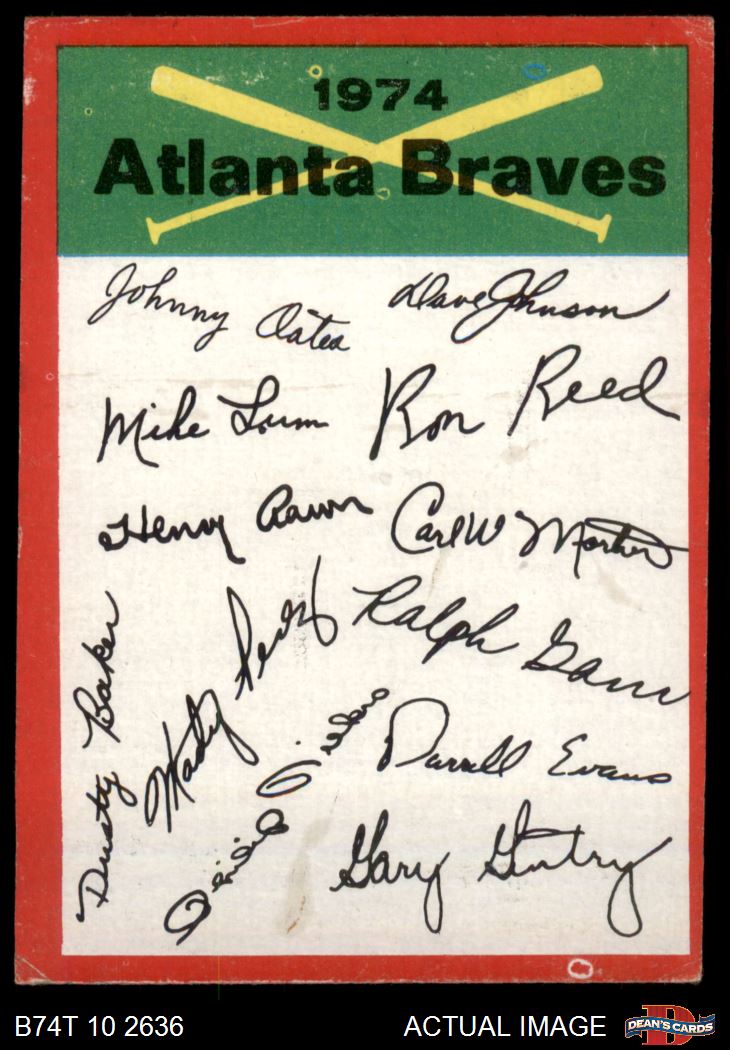 1974
Atlanta Braves
Johnny Oates
Dave Johnson
Mike Lum
Ron Reed
Henry Aaron
Carl W Morton
Dusty Baker
Marty Perez
Ralph Garr
Darrell Evans
Gary Gentry
B74T 10 2636
ACTUAL IMAGE
D
DEAN'S CARDS